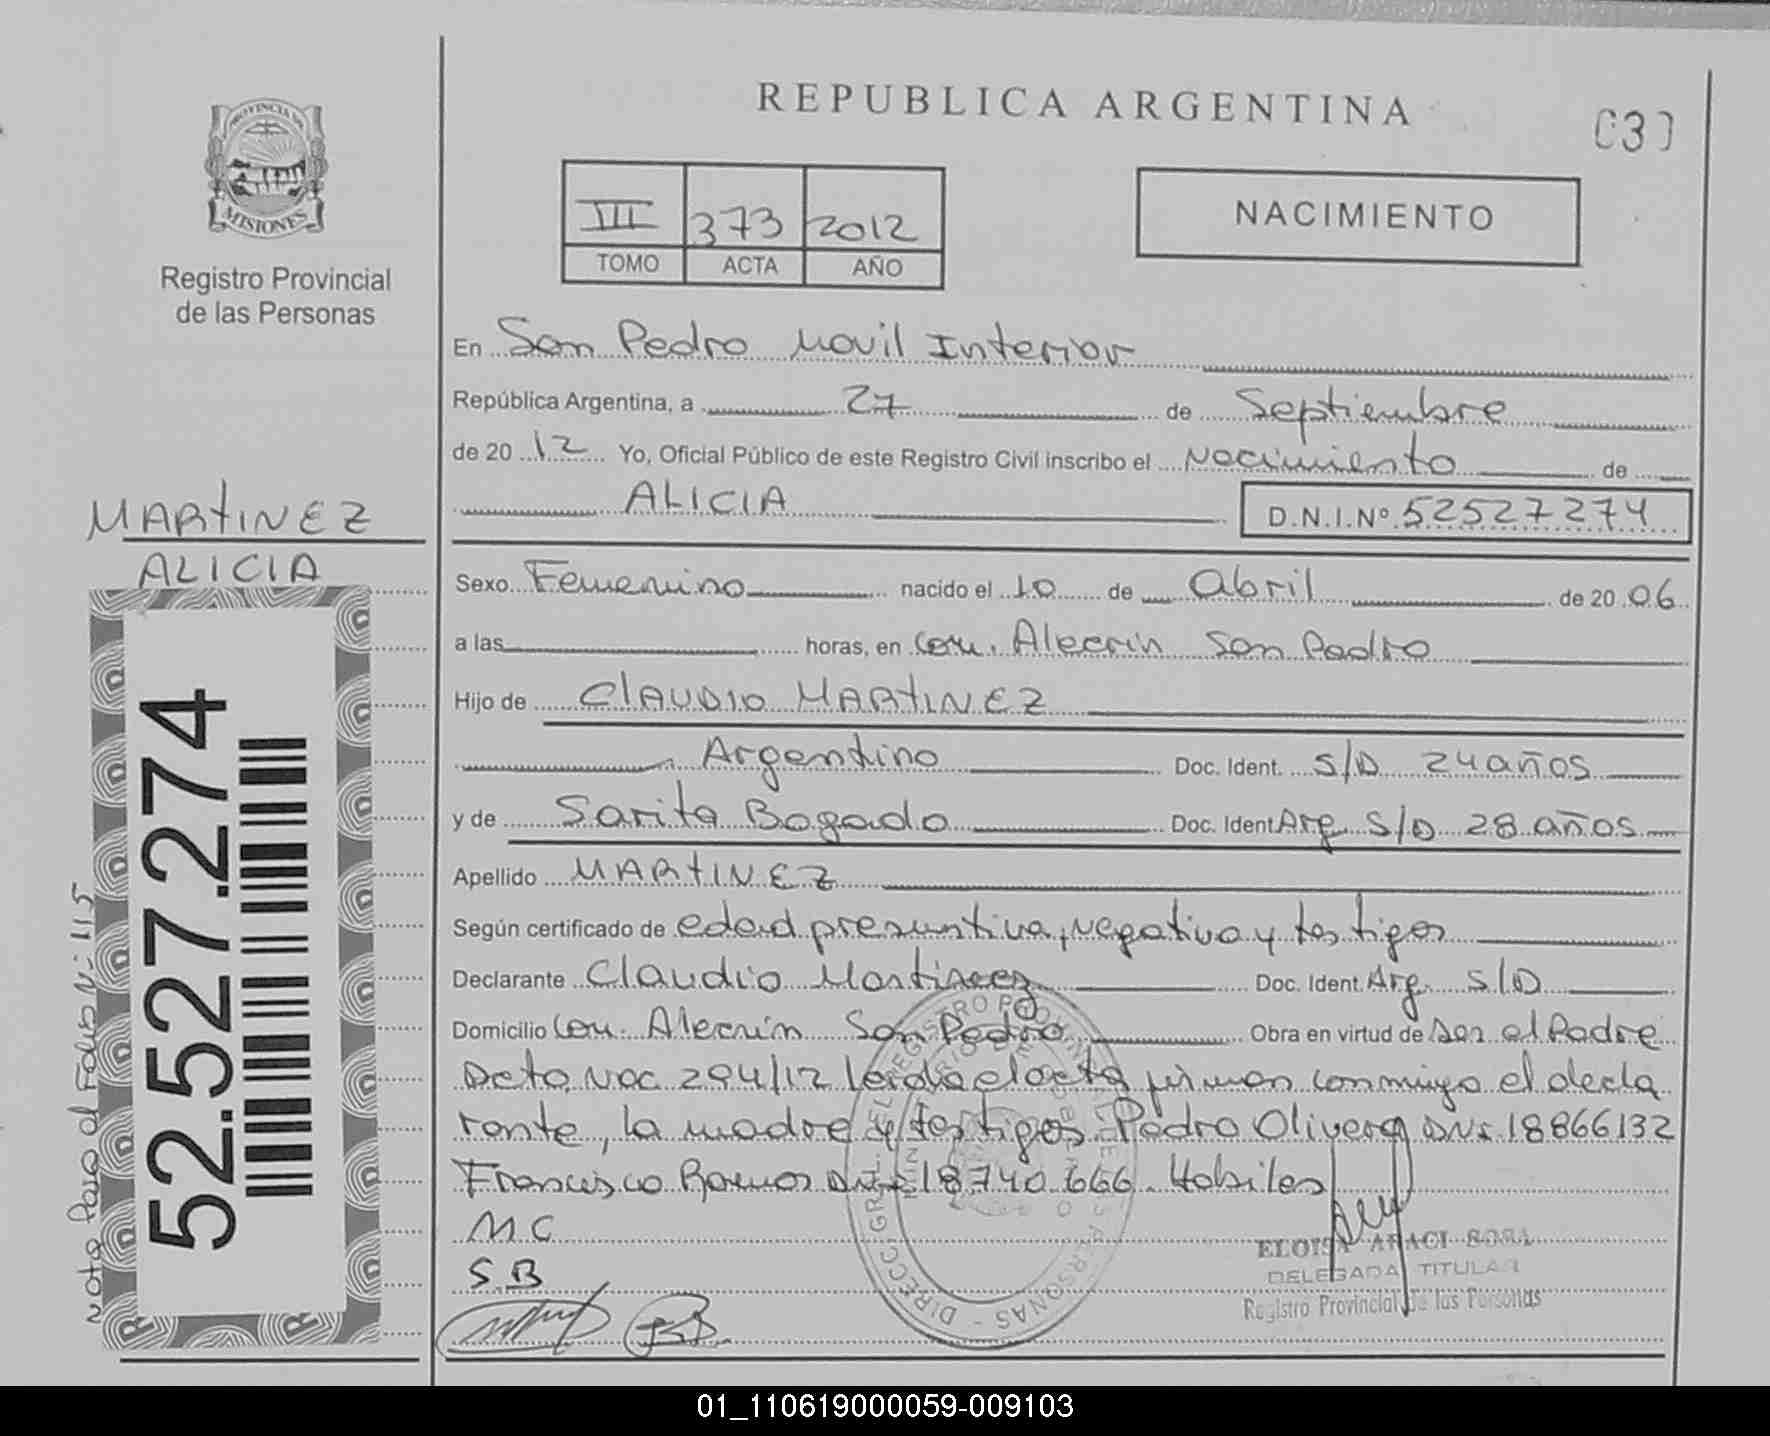 REPUBLICA ARGENTINA
PROVINCIA DE
MISIONES
Registro Provincial
de las Personas
III 373 2012
TOMO ACTA AÑO
NACIMIENTO
En San Pedro Movil Interior
República Argentina, a 27 de Septiembre
de 2012 Yo, Oficial Público de este Registro Civil inscribo el Nacimiento de
ALICIA D.N.I.Nº 52527274
MARTINEZ
ALICIA
Sexo Femenino nacido el 10 de Abril de 2006
a las horas, en Com. Alecrin San Pedro
Hijo de CLAUDIO MARTINEZ
Argentino Doc. Ident. S/D 24 años
y de Sarita Bogado Doc. Ident Arg. S/D 28 años
Apellido MARTINEZ
Según certificado de edad presuntiva, negativa y testigos
Declarante Claudio Martinez Doc. Ident. Arg. S/D
Domicilio Com. Alecrin San Pedro Obra en virtud de ser el Padre
Dcto Nac 294/12 leida el acta firman conmigo el decla
rante, la madre y testigos Pedro Olivera DNI 18866132
Francisco Ramos DNI 18740666. Habiles
M C
S. B
ELOISA ARACI SOSA
DELEGADA TITULAR
Registro Provincial de las Personas
52.527.274
Nota Pasa al Folios Nº 115
01_110619000059-009103